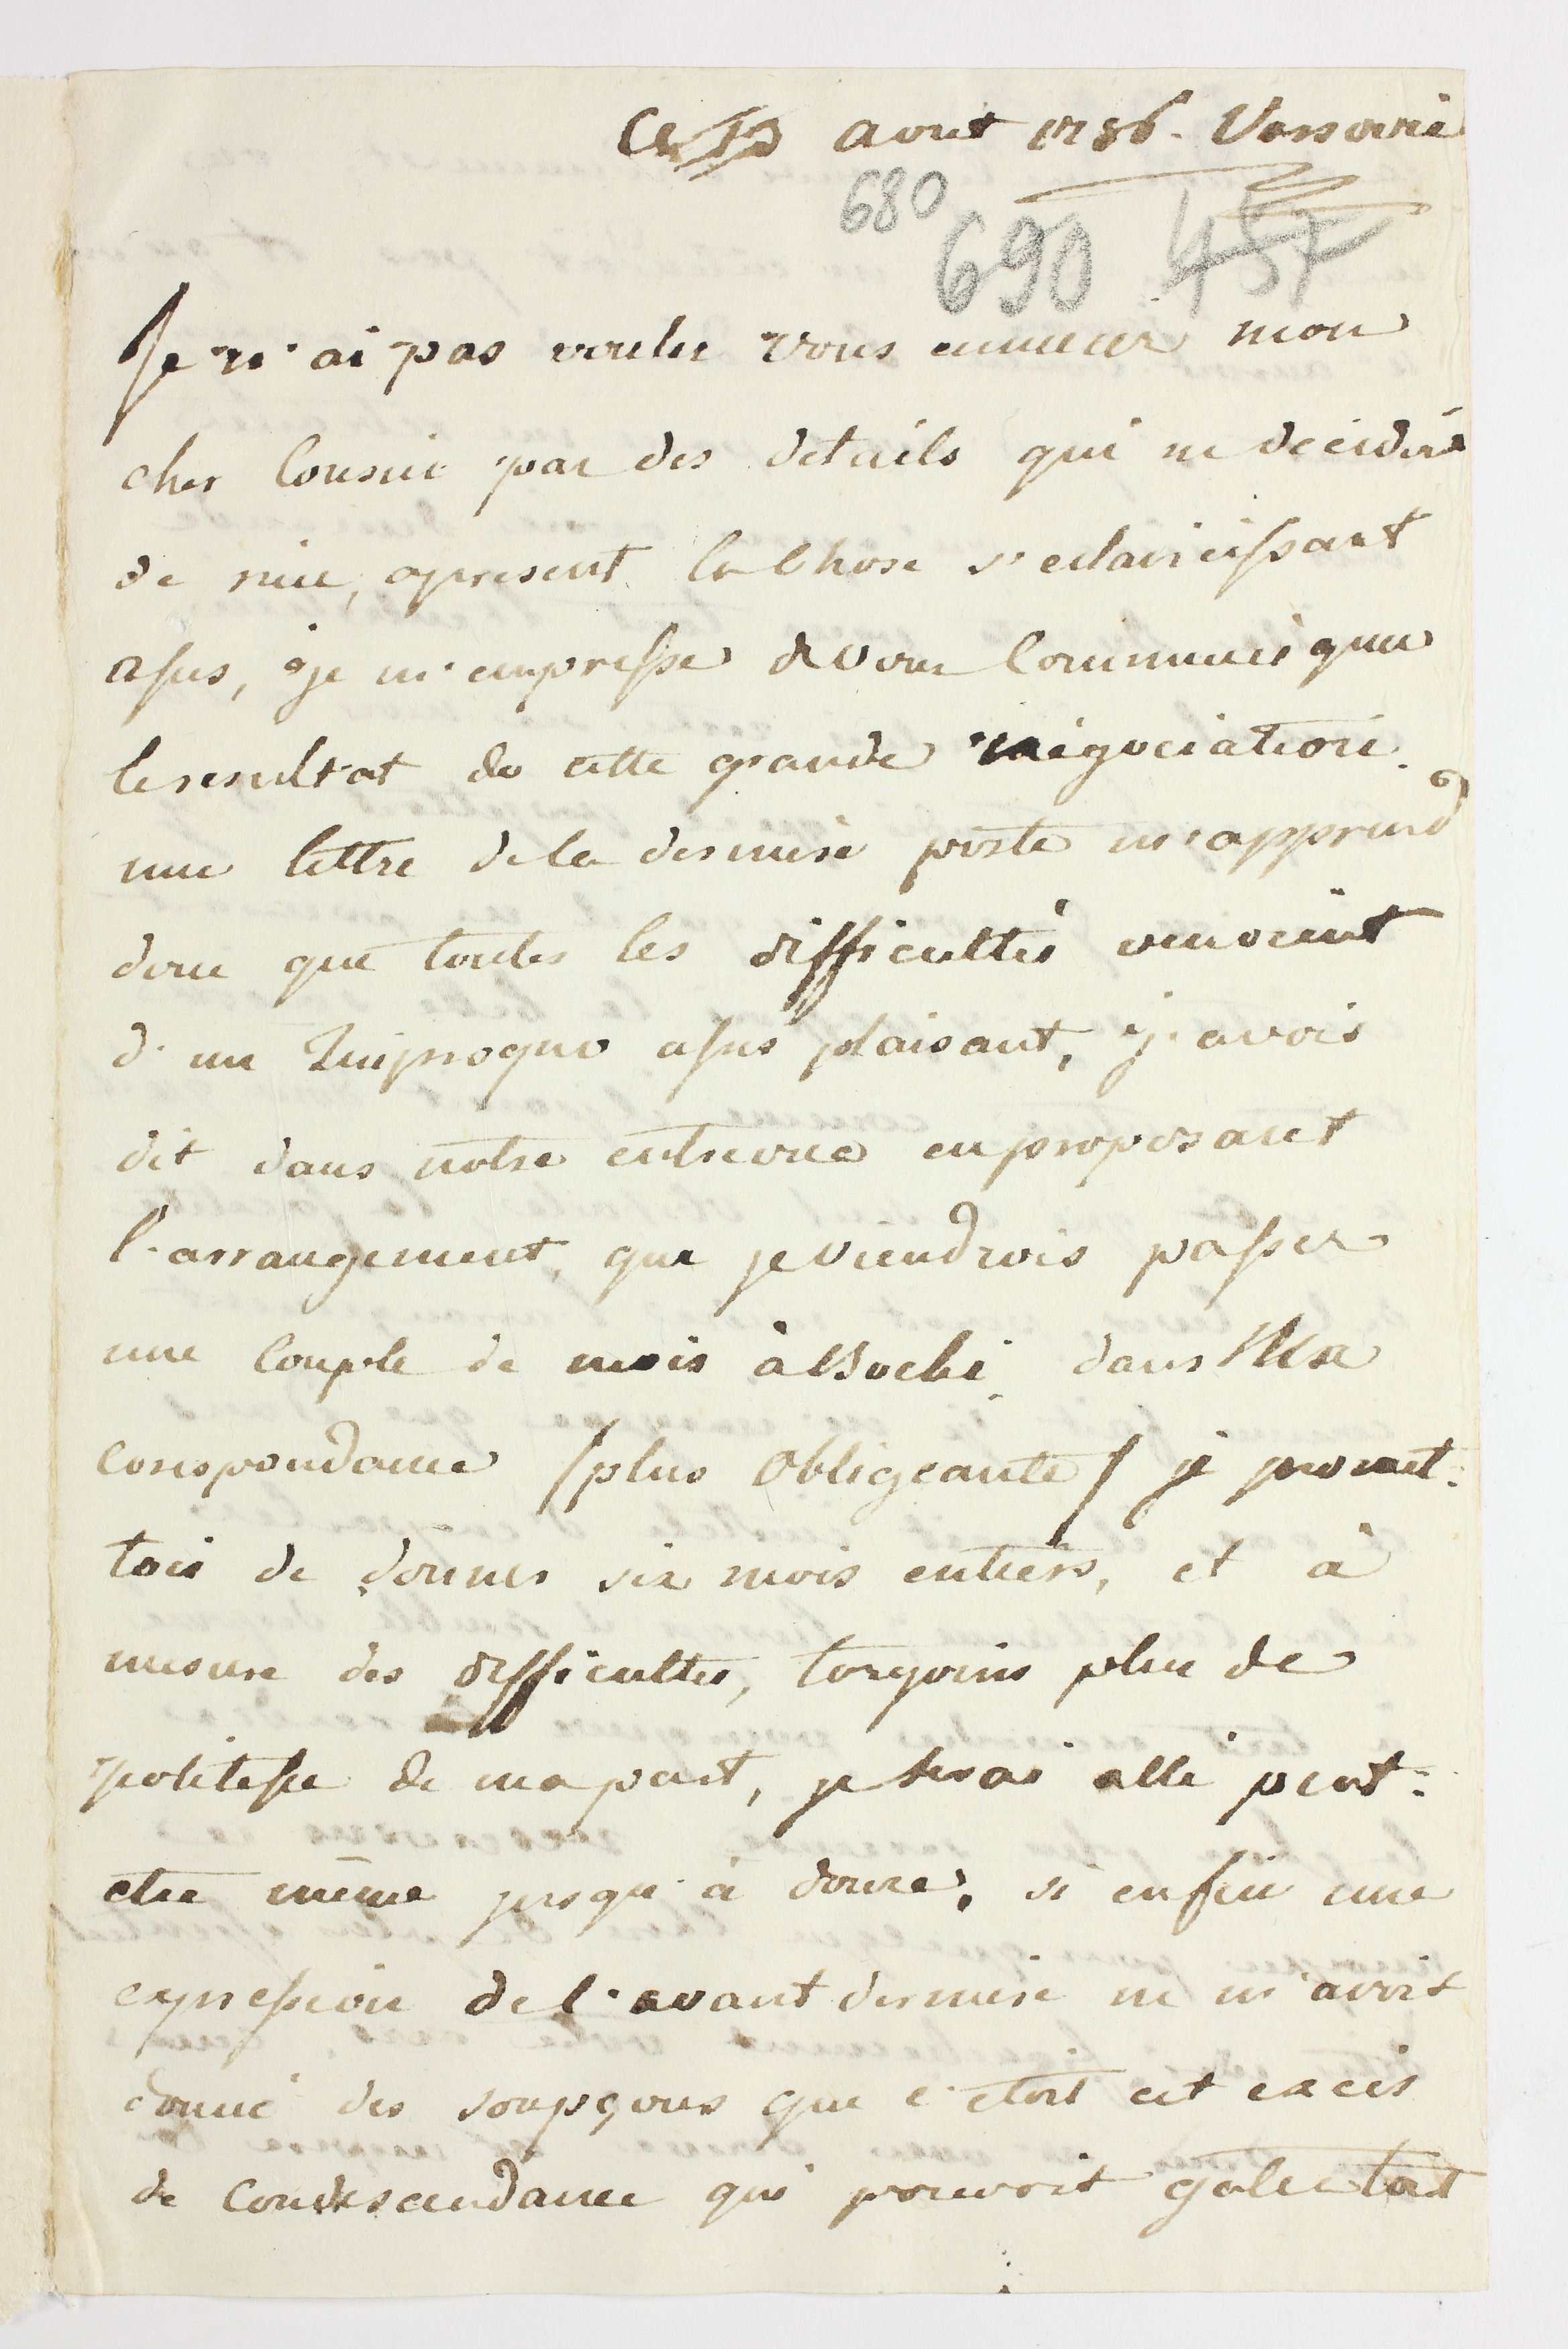 Ce 13 aout 1786. Varsovie
680
690 457
Je n'ai pas voulu vous ennuier mon
cher Cousin par des details qui ne decidoit
de rien, apresent la Chose s'eclaircissant
assés, je m'empresse de vous Communiquer
le resultat de cette grande négociation.
une lettre de la derniere poste m'apprend
donc que toutes les difficultés venoient
d'un Quiproquo assés plaisant, j'avois
dit dans notre entrevue en proposant
l'arrangement, que je viendrois passer
une Couple de mois à Boćki, dans Ma
corespondance /plus Obligeante/ je promet:
tois de donner six mois entiers, et à
mesure des difficultés, toujours plus de
politesse de ma part, je serai allé peut:
etre même jusqu'à douze, si enfin une
expression de l'avant derniere ne m'avoit
donné des soupçons que c'etoit cet exces
de Condescendance qui pouvoit gater tout